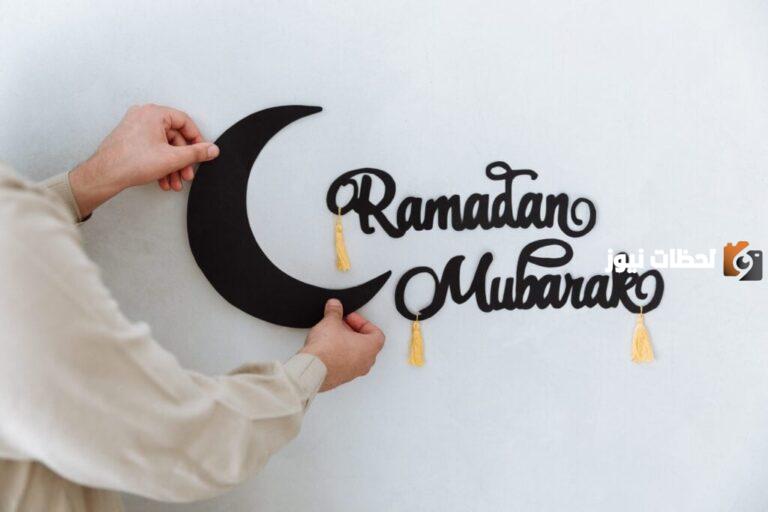 Ramadan
Mubarak
لحظات نيوز